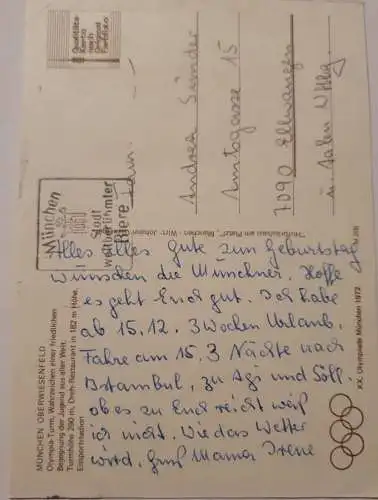 Alles alles Gute zum Geburtstag
wünschen die Münchner. Hoffe
es geht Euch gut. Ich habe
ab 15.12. 3 Wochen Urlaub,
Fahre am 15. 3 Nächte nach
Istambul, zu Agi und Söll.
ob es zu Euch reicht weiß
ich nicht. Wie das Wetter
wird. Gruß Mama Irene
Andrea Sünder
Amtsgasse 15
7090 Ellwangen
München
Stadt
weltberühmter
Biere
Qualitäts-
Karte
nach
Original
Farbfoto
MÜNCHEN OBERWIESENFELD
Olympia-Turm, Wahrzeichen einer friedlichen
Begegnung der Jugend aus aller Welt.
Turmhöhe 290 m, Dreh-Restaurant in 182 m Höhe.
XX. Olympiade München 1972